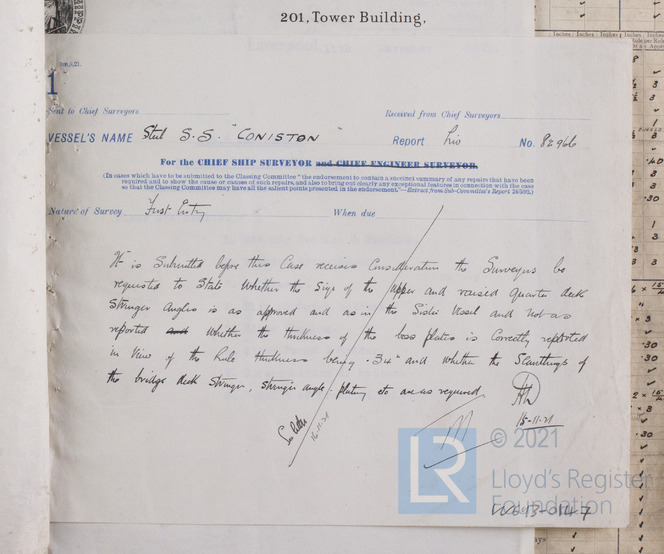 201, Tower Building,
1
Sent to Chief Surveyors
Received from Chief Surveyors
VESSEL'S NAME Steel S.S. "CONISTON"
Report No. 82966
For the CHIEF SHIP SURVEYOR and CHIEF ENGINEER SURVEYOR.
(In cases which have to be submitted to the Classing Committee "the endorsement to contain a succinct summary of any repairs that have been
required and to show the cause or causes of such repairs, and also to bring out clearly any exceptional features in connection with the case
so that the Classing Committee may have all the salient points presented in the endorsement."—Extract from Sub-Committee's Report 24/5/93.)
Nature of Survey First Entry When due
It is Submitted before this Case receives Consideration the Surveyors be
requested to State whether the Size of the upper and raised quarter deck
Stringer Angles is as approved and as in the Sister Vessel and not as
reported and whether the thickness of the boss plates is Correctly reported
in View of the Rule thickness being .34" and whether the Scantlings of
the bridge deck stringer, stringer angle, plating etc are as required
15-11-21
See letter
16.11.21
LR
© 2021
Lloyd's Register
Foundation
W643-0147
Inches Inches Inches Inches